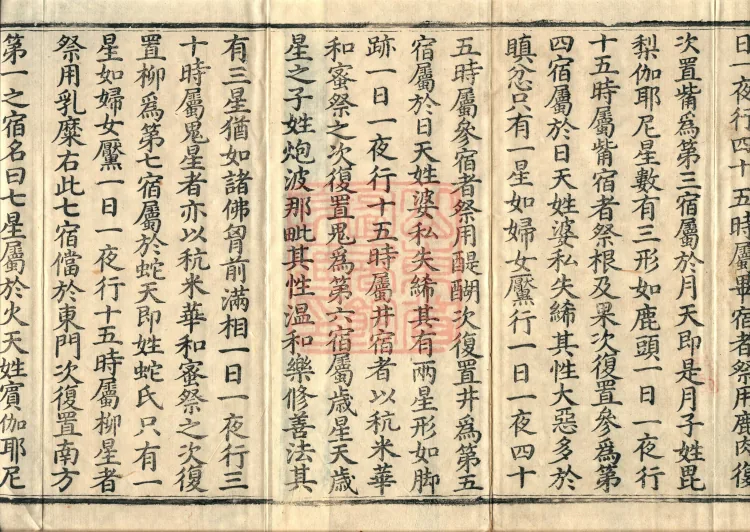 日一夜行四十五時屬畢宿者祭用鹿肉復
次置觜爲第三宿屬於月天即是月子姓毘
梨伽耶尼星數有三形如鹿頭一日一夜行
十五時屬觜宿者祭根及果次復置參爲第
四宿屬於日天姓婆私失絺其性大惡多於
瞋忿只有一星如婦女黶行一日一夜四十
五時屬參宿者祭用醍醐次復置井爲第五
宿屬於日天姓婆私失絺其有兩星形如脚
跡一日一夜行十五時屬井宿者以秔米華
和蜜祭之次復置鬼爲第六宿屬歲星天歲
星之子姓炮波那毗其性溫和樂修善法其
有三星猶如諸佛胷前滿相一日一夜行三
十時屬鬼星者亦以秔米華和蜜祭之次復
置柳爲第七宿屬於蛇天即姓蛇氏只有一
星如婦女黶一日一夜行十五時屬柳星者
祭用乳糜右此七宿當於東門次復置南方
第一之宿名曰七星屬於火天姓賓伽耶尼